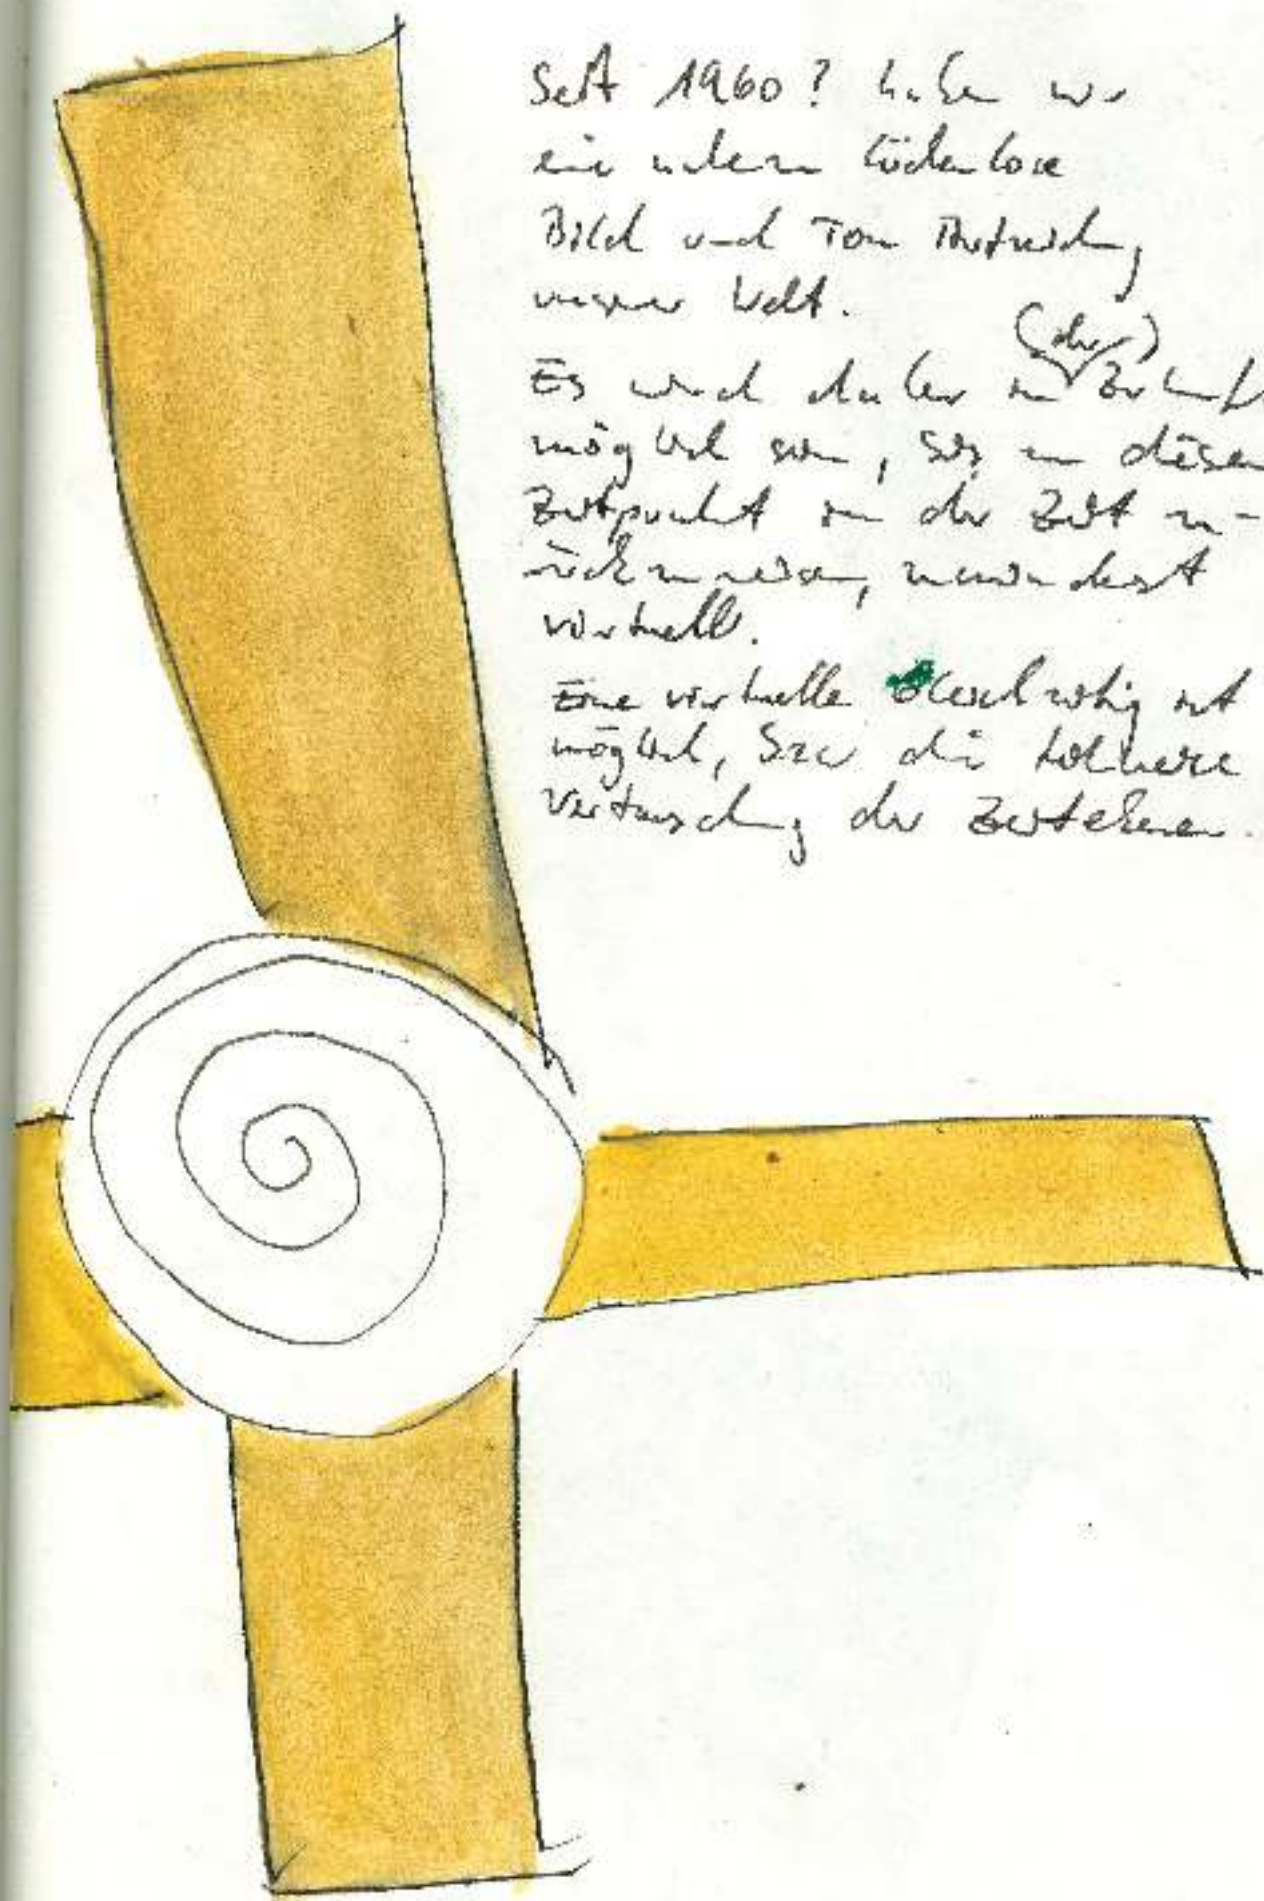 Seit 1960? haben wir
eine nahezu lückenlose
Bild und Ton Aufzeichnung
unserer Welt.
(der)
Es wird daher in Zukunft
möglich sein, bis zu diesem
Zeitpunkt in der Zeit zu-
rückzureisen, zumindest
virtuell.
Eine virtuelle ist
möglich, bzw die
Vertauschung der Zeitebenen.